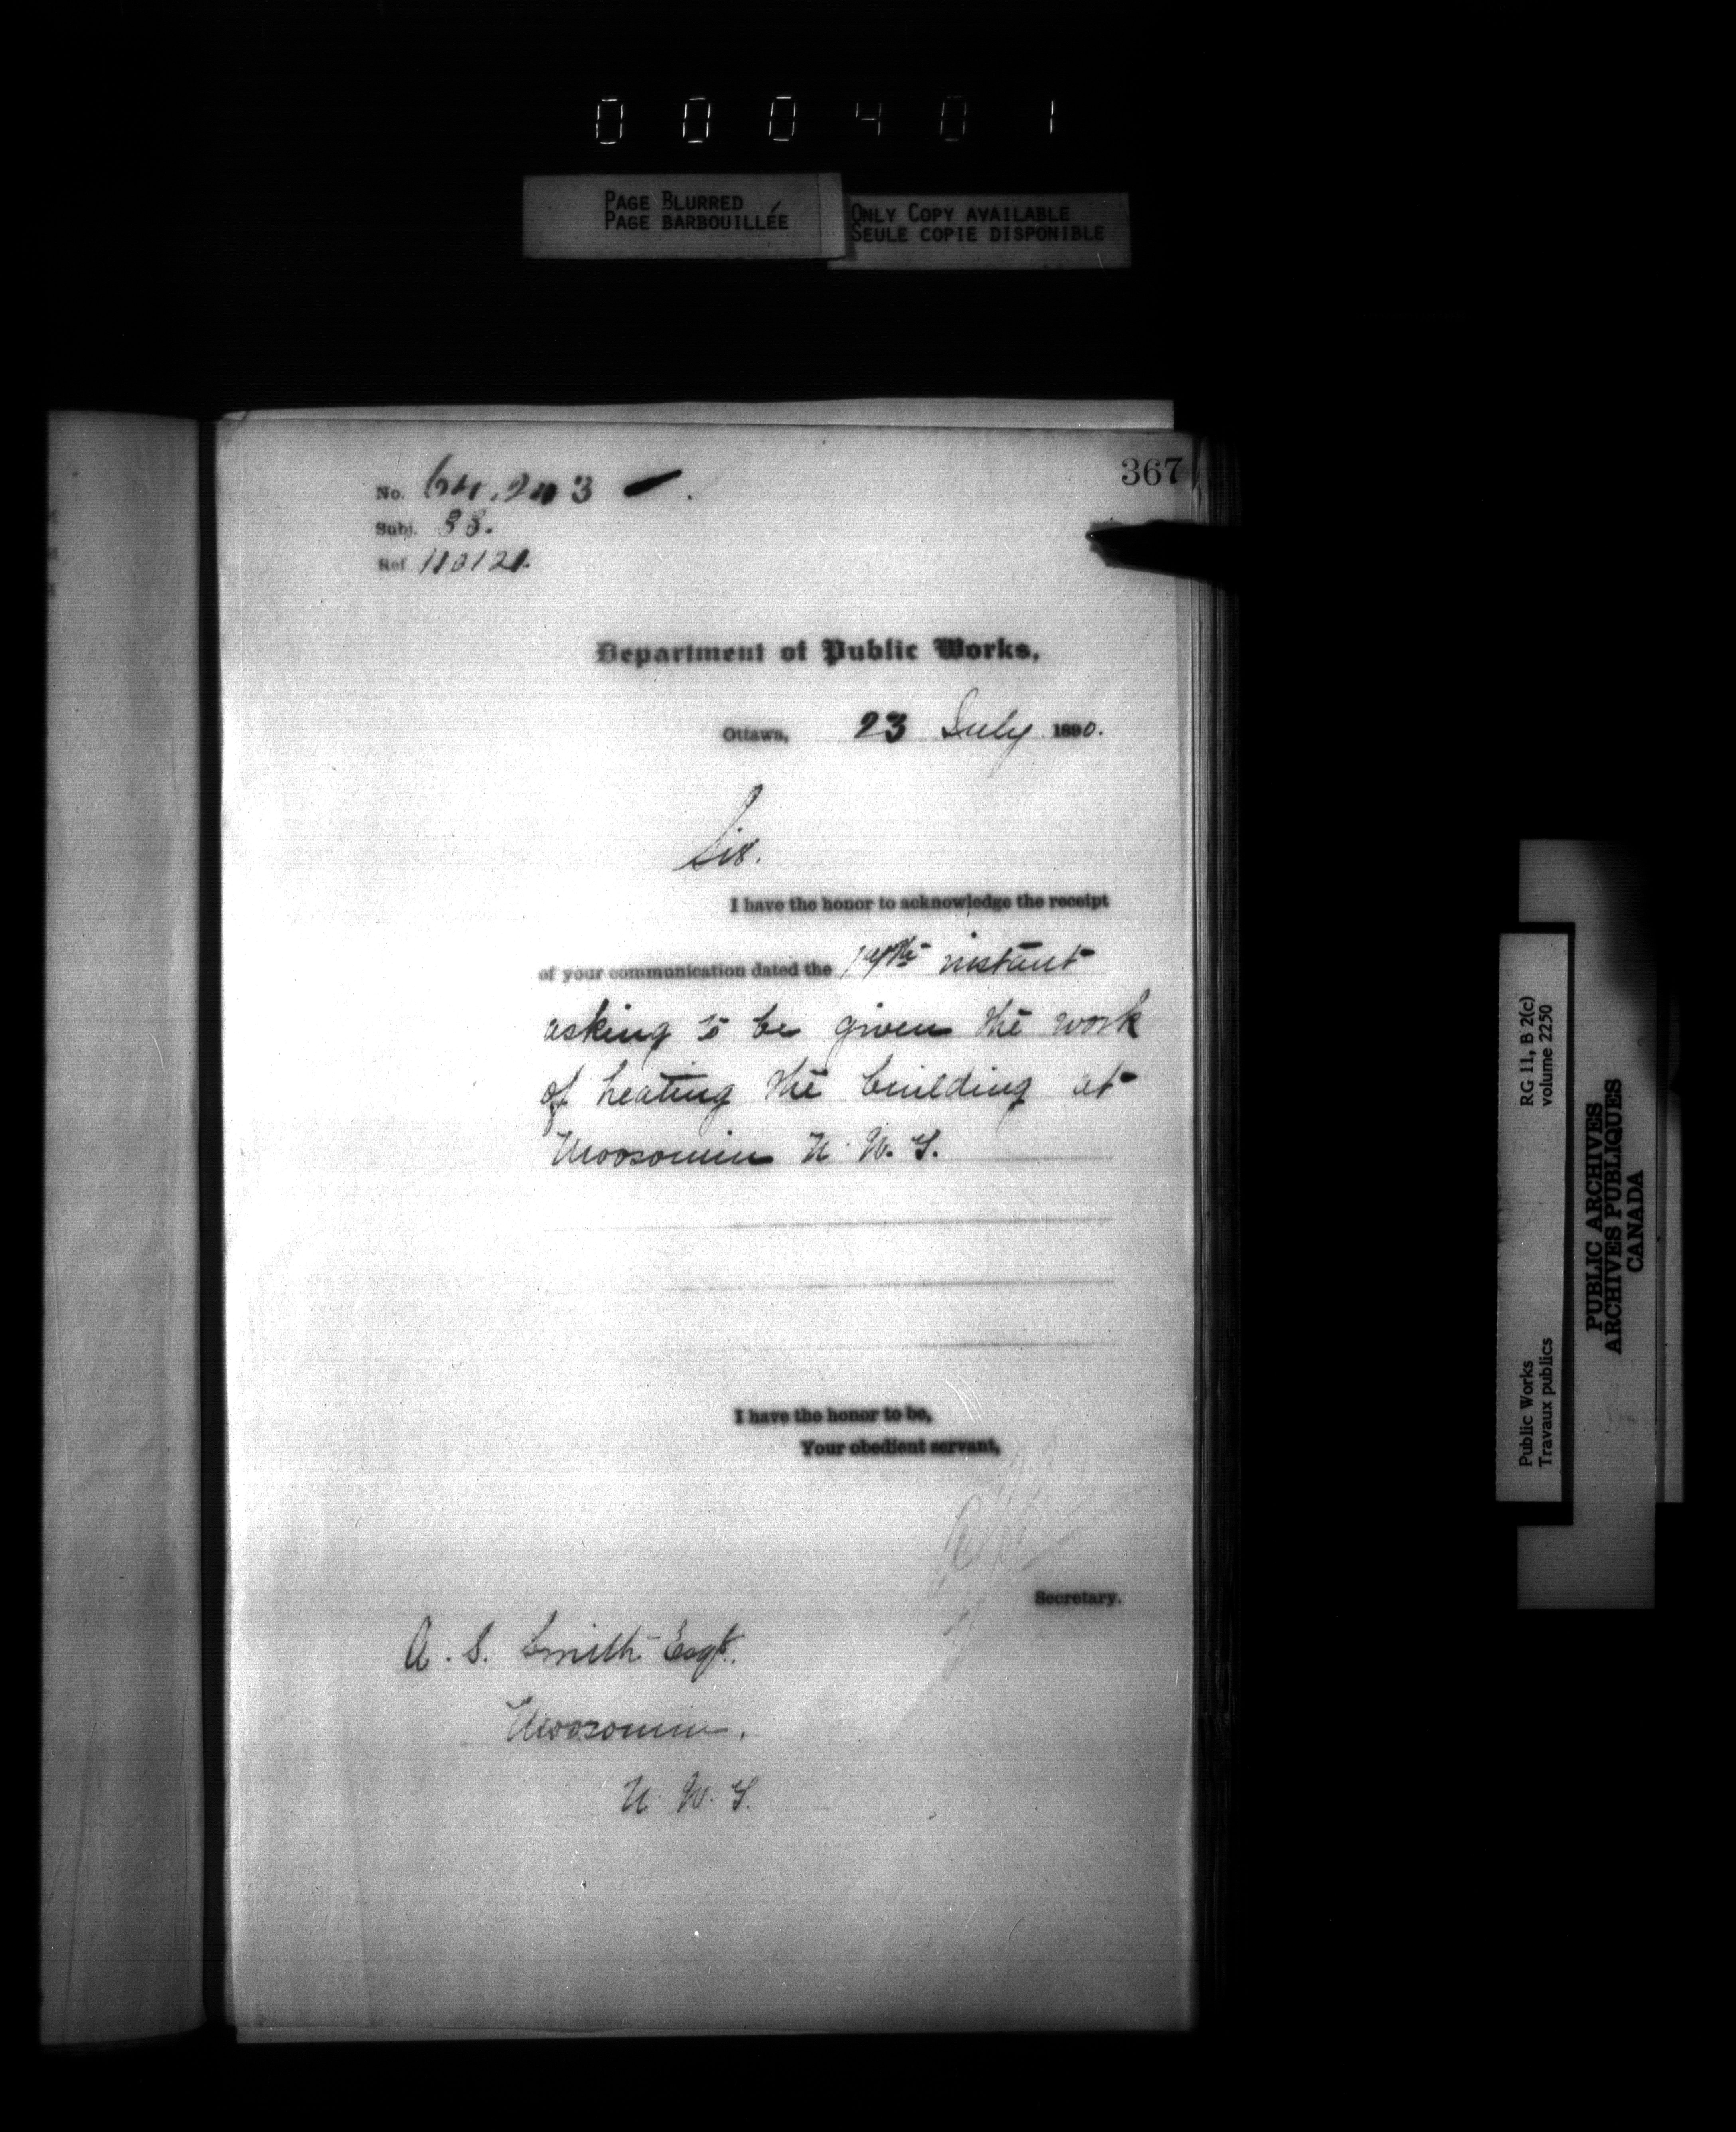 000401
PAGE BLURRED
PAGE BARBOUILLÉE
ONLY COPY AVAILABLE
SEULE COPIE DISPONIBLE
367
No.
Subj. 33.
Ref 110121.
Department of Public Works,
Ottawa, 23 July 1890.
Sir.
I have the honor to acknowledge the receipt
of your communication dated the instant
asking to be given the work
of heating the building at
Moosomin N. W. T.
I have the honor to be,
Your obedient servant,
Secretary.
A. S. Smith Esqr.
Moosomin.
N. W. T.
RG 11, B 2(c)
volume 2250
Public Works
Travaux publics
PUBLIC ARCHIVES
ARCHIVES PUBLIQUES
CANADA